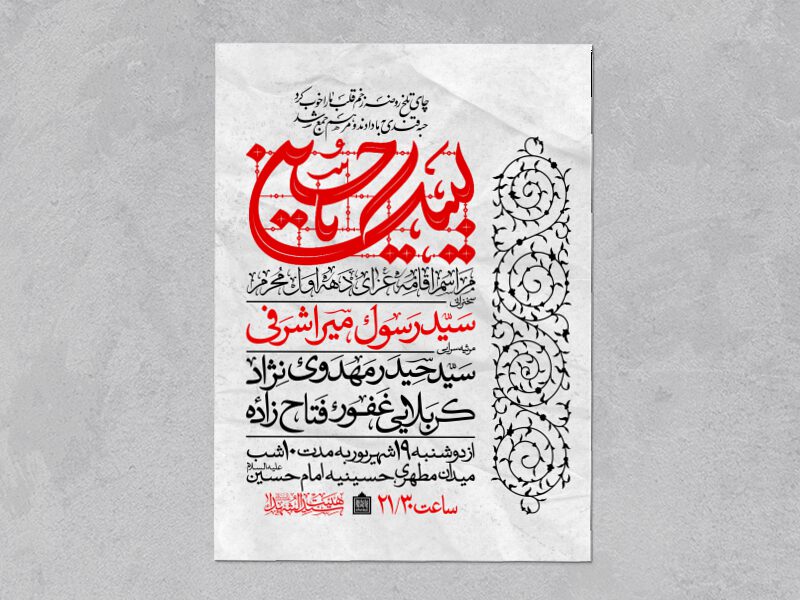 چای تلخ روضه زخم قلب ما را خوب کرد
حبه قندی آباد اوند و مرهم جمع شد
لبیک یا حسین
مراسم اقامه عزای دهه اول محرم
سخنرانی
سیّد رسول میراشرفی
مرثیه‌سرایی
سیّد حیدر مهدوی‌نژاد
کربلایی غفور فتاح زاده
از دوشنبه ۱۹ شهریور به مدت ۱۰ شب
میدان مطهری حسینیه امام حسین علیه السلام
ساعت ۲۱/۳۰
هیئت سیدالشهدا